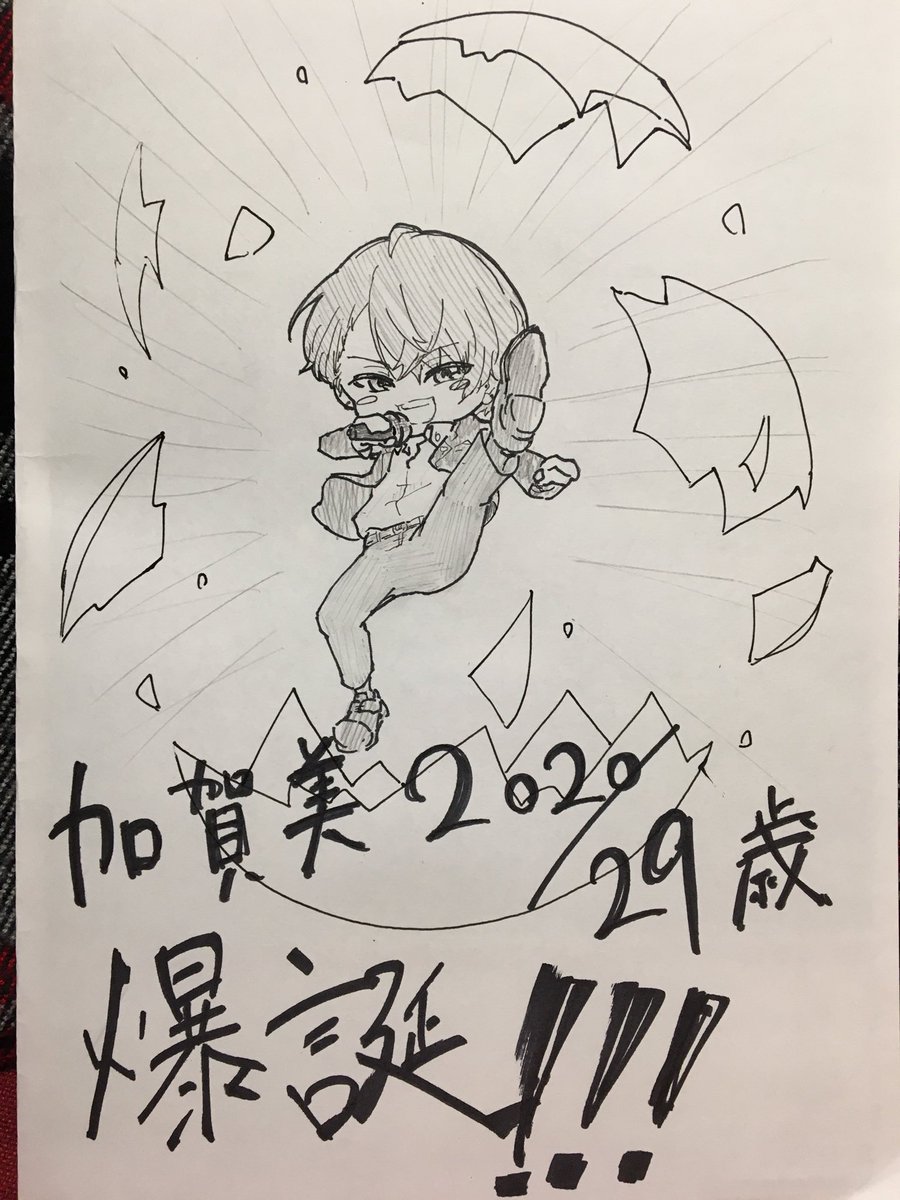 加賀美2020/29歳
爆誕!!!